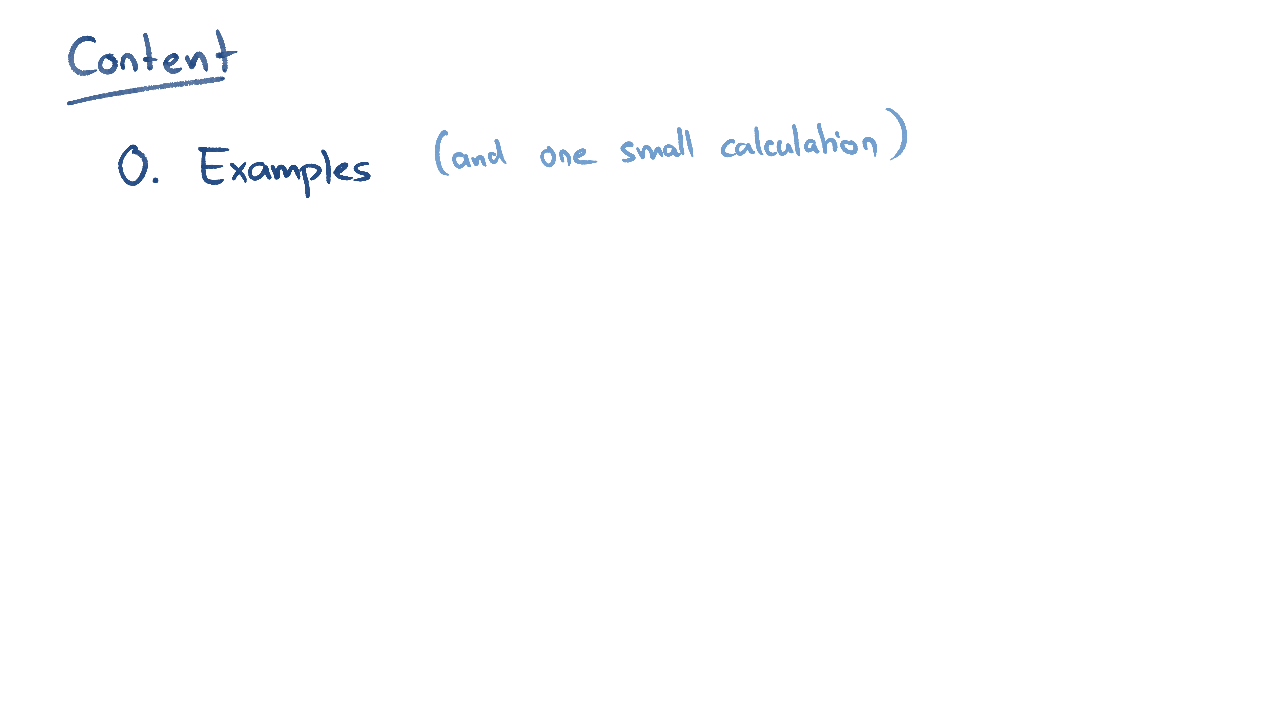 Content
0. Examples (and one small calculation)